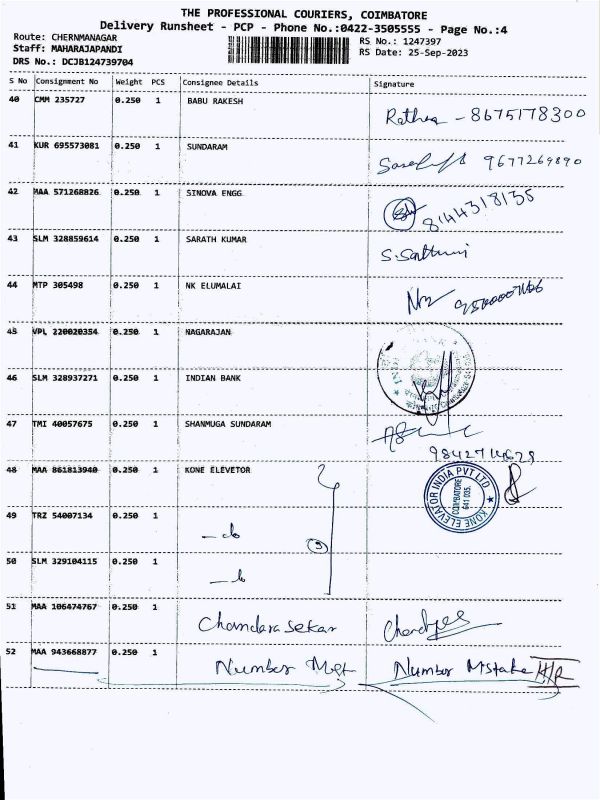 THE PROFESSIONAL COURIERS, COIMBATORE
Delivery Runsheet - PCP - Phone No.:0422-3505555 - Page No.:4
Route: CHERNMANAGAR
Staff: MAHARAJAPANDI
DRS No.: DCJB124739704
RS No.: 1247397
RS Date: 25-Sep-2023
S No Consignment No Weight PCS Consignee Details Signature
40 CMM 235727 0.250 1 BABU RAKESH - 8675178300
41 KUR 695573081 0.250 1 SUNDARAM 9677269890
42 MAA 571268826 0.250 1 SINOVA ENGG 8144318135
43 SLM 328859614 0.250 1 SARATH KUMAR
44 MTP 305498 0.250 1 NK ELUMALAI
45 VPL 220020354 0.250 1 NAGARAJAN
46 SLM 328937271 0.250 1 INDIAN BANK
47 TMI 40057675 0.250 1 SHANMUGA SUNDARAM
9842714629
48 MAA 861813940 0.250 1 KONE ELEVETOR
KONE ELEVATOR INDIA PVT LTD
COIMBATORE
641 035.
49 TRZ 54007134 0.250 1
3
50 SLM 329104115 0.250 1
51 MAA 106474767 0.250 1 Chandara sekar
52 MAA 943668877 0.250 1 Number Number Mstake